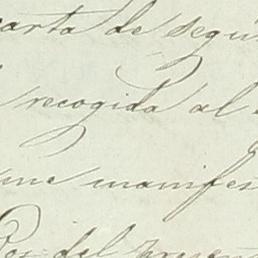 carta de segu
recogida al
une manifes
Dos del presen